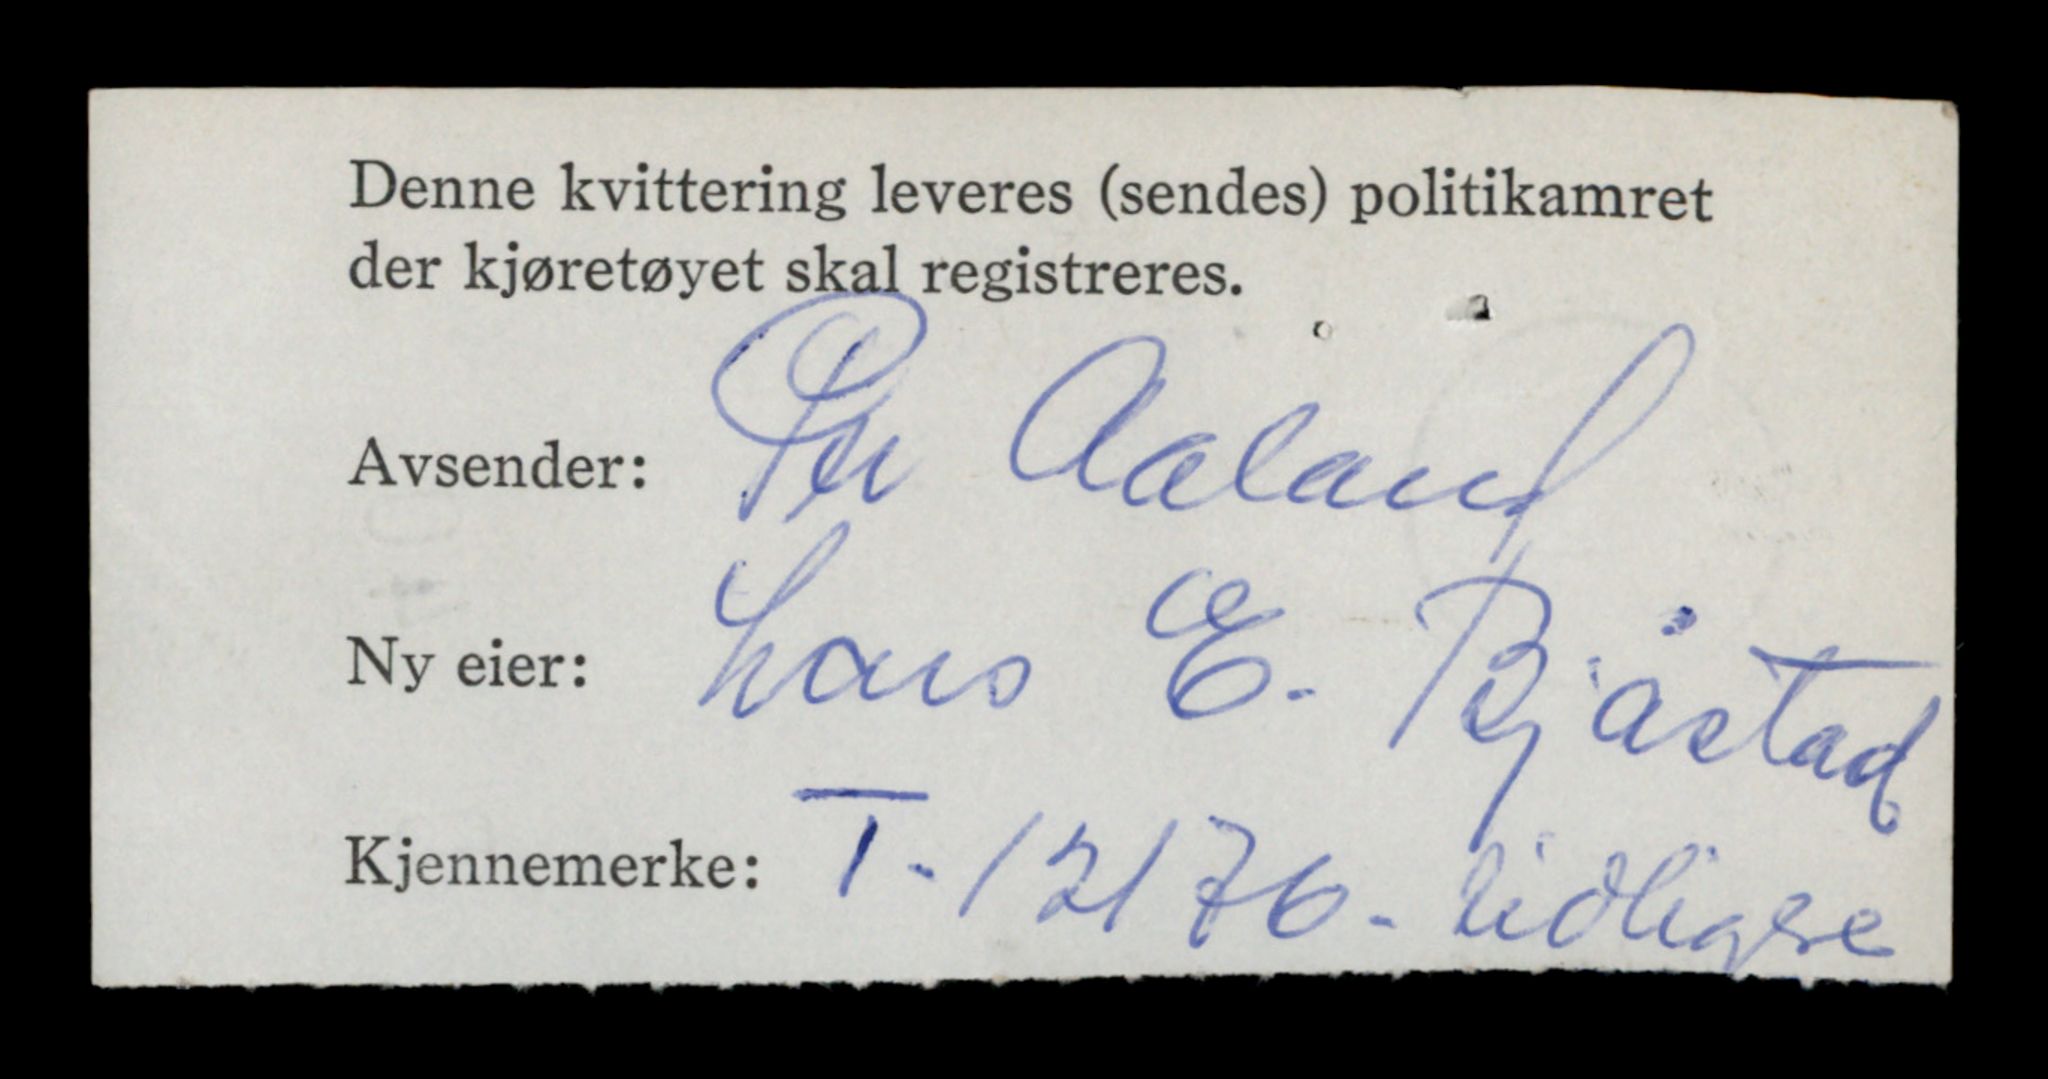 Denne kvittering leveres (sendes) politikamret
der kjøretøyet skal registreres.
Avsender: Per Aaland
Ny eier: Lars E. Bjåstad
Kjennemerke: T-12176- tidligere